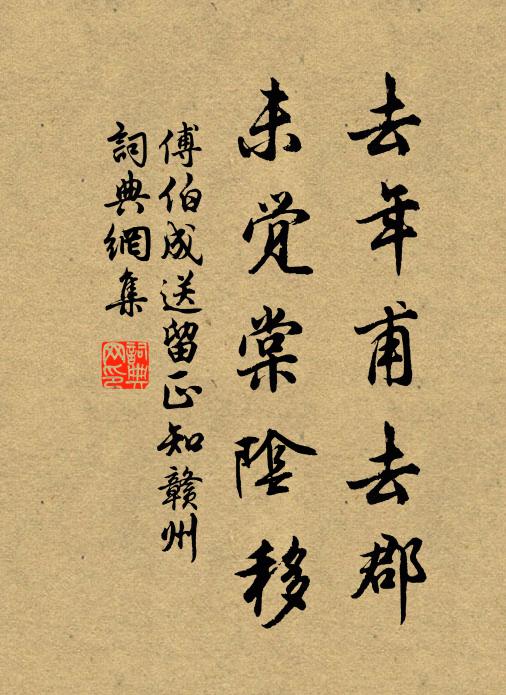 去年甫去郡
未觉棠陰移
傅伯成送留正知赣州
詞典網集
詞典网印